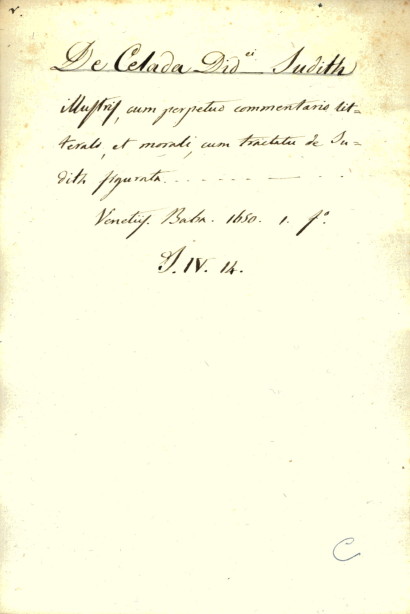 De Celada Did.ci Judith
illustris, cum perpetuo commentario lit=
terali, et morali, cum tractatu de Ju=
dith figurata. . . - - - - - -
Venetiis. Baba. 1650. 1. fo.
J. IV. 14.
C